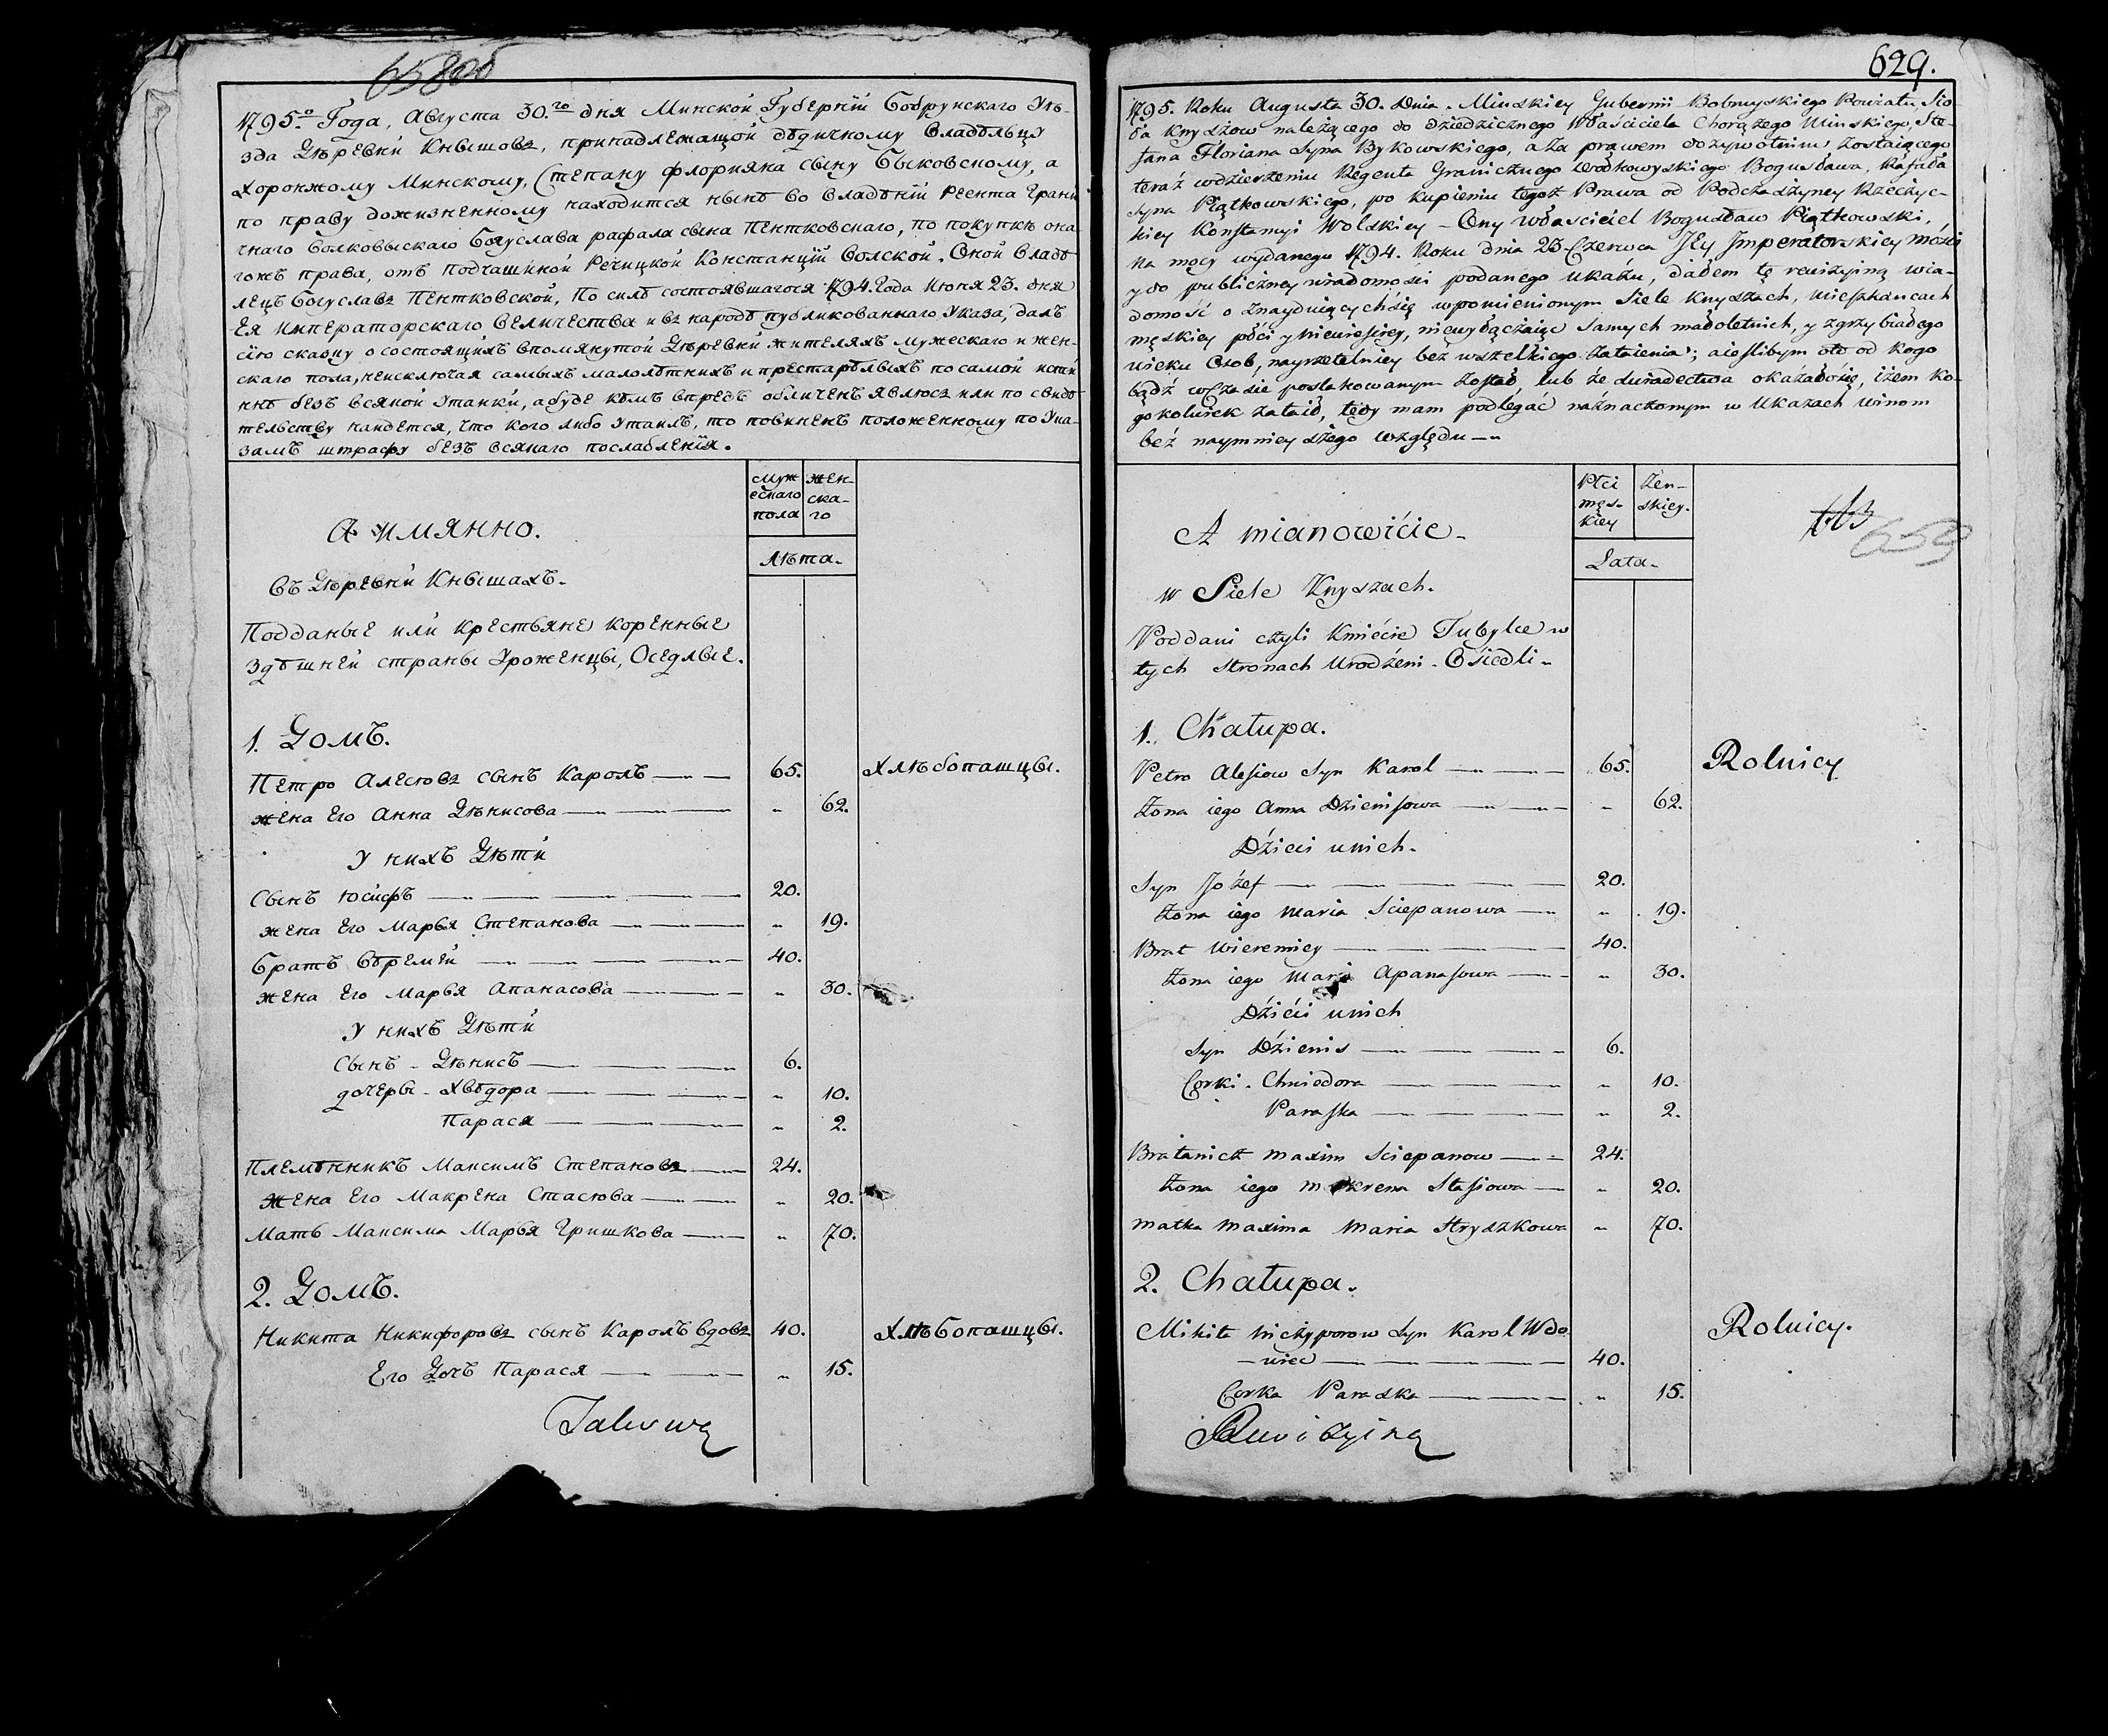 658об
1795.º Года, Августа 30.го дня Минской Губерніи Бобруискаго Уѣ-
зда Деревни Кнышовъ, принадлежащой дѣдичному Владѣльцу
Хоронжому Минскому, Степану флорияна сыну Быковскому, а
по праву дожизненному находится нынѣ во владѣніи Реента Грани
чнаго Волковыскаго Богуслава рафала сына Пентковскаго, по покупкѣ она-
гожъ права, отъ подчашиной Речицкой Констанціи Волской. Оной Владѣ
лецъ Богуславъ Пентковской, По силѣ состоявшагося 1794. Года Июня 23. дня
Ея Императорскаго Величества и въ народѣ публикованнаго Указа, далъ
сію сказку о состоящихъ впомянутой Деревни жителяхъ мужескаго и жен-
скаго пола, неисключая самыхъ малолѣтнихъ и престарѣлыхъ по самой исти
ннѣ безъ всякой Утайки, абуде кѣмъ впредь обличенъ явлюсь или по свидѣ
тельству найдется, что кого либо Утаилъ, то повиненъ положенному по Ука-
замъ штрафу безъ всякаго послабленія.
муж
ескаго
пола
жен-
ска-
го
А имянно.
Лѣта.
въ Деревни Кнышахъ.
Подданые или крестьяне коренные
здѣшней страны Уроженцы, Оседлые.
1. Домъ.
Петро Алесювъ сынъ Кароль 65. Хлѣбопашцы.
жена Его Анна Дѣнисова " 62.
У нихъ Дѣти
Сынъ Юсифъ 20.
жена Его Марья Степанова " 19.
братъ Вѣремѣй 40.
жена Его Марья Апанасова " 30.
У нихъ Дѣти
Сынъ - Дѣнисъ 6.
дочеры - Хвѣдора " 10.
Парася " 2.
Племѣнникъ Максимъ Степановъ 24.
жена Его Макрена Стасюва " 20.
Мать Максима Марья Гришкова " 70.
2. Домъ.
Никита Никифоровъ сынъ Кароль вдовъ 40. Хлѣбопашцы.
Его Дочъ Парася " 15.
629.
1795. Roku Augusta 30. Dnia. Minskiey Gubernii Bobruyskiego Powiatu, Sio
ła Knyszow należącego do dziedzicznego Właściciela Chorążego Minskiego, Ste-
fana Floriana Syna Bykowskiego, a za prawem dożywotnim zostaiącego
teraź wdzierżeniu Regenta Granicznego Wołkowyskiego Bogusława, Rafała
Syna Piątkowskiego, po kupieniu tegoż Prawa od Podczaszyney Rzeczyc-
kiey Konstancyi Wolskiey - Ony właściciel Bogusław Piątkowski,
Na mocy wydanego 1794. Roku dnia 23 Czerwca JEy Jmperatorskiey mości
y do publiczney wiadomości podanego ukazu, dałem tę rewizyiną wia-
domość o znayduiącychśię wpomienionym Siele Knyszach, mieszkancach
męskiey płci y niewieściey, niewyłączaiąc samych małoletnich, y zgrzybiałego
wieku osob, nayrzetelniey bez wszelkiego zataienia; a ieślibym oto od kogo
bądź w czasie poszlakowanym został, lub ze świadectwa okazałośię, iżem ko-
gokolwiek zataił, tedy mam podlegać naznaczonym w ukazach winom
bez naymnieyszego względu
Płci
męs-
kiey
żen-
skiey.
113
659
A mianowićie
Lata
w Siele Knyszach.
Poddani czyli Kmiećie Tubylce w
tych stronach urodzeni. Ośiedli
1. Chałupa.
Petro Alesiow Syn Karol 65. Rolnicy
Żona iego Anna Dzienisowa " 62.
Dźieci unich.
Syn Jozef 20.
Żona iego Maria Sciepanowa " 19.
Brat Wieremiey 40.
Żona iego Maria Apanasowa " 30.
Dźieći unich
Syn Dzienis 6.
Corki. Chwiedora " 10.
Paraska " 2.
Bratanick Maxim Sciepanow 24.
Żona iego Makrena Stasiowa " 20.
Matka Maxima Maria Hryszkowa " 70.
2. Chałupa.
Mikita Nickyporow Syn Karol Wdo Rolnicy.
-wiec 40.
Corka Paraska " 15.